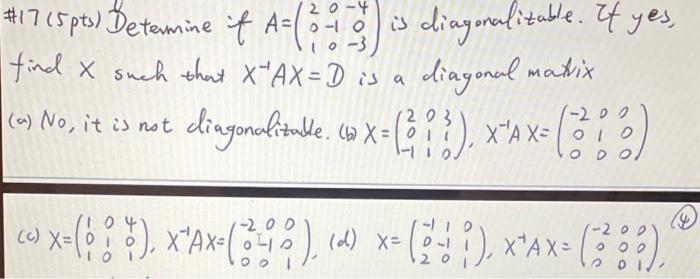 #17 (5 pts) Determine if A = ( 2 0 -4 ; 0 -1 0 ; 1 0 -3 ) is diagonalizable. If yes,
find X such that X⁻¹AX = D is a diagonal matrix
(a) No, it is not diagonalizable. (b) X = ( 2 0 3 ; 0 1 1 ; -1 1 0 ), X⁻¹AX = ( -2 0 0 ; 0 1 0 ; 0 0 0 )
(c) X = ( 1 0 4 ; 0 1 0 ; 1 0 1 ), X⁻¹AX = ( -2 0 0 ; 0 -1 0 ; 0 0 1 ), (d) X = ( -1 1 0 ; 0 -1 1 ; 2 0 1 ), X⁻¹AX = ( -2 0 0 ; 0 0 0 ; 0 0 1 ),
④